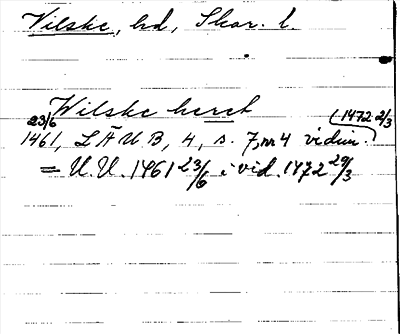 Vilske, hd, Skar. l.
Wilske heret
23/6 (1472 2/3
1461, LÄUB, 4, s. 7, nr 4 vidim.
= U.U. 1461 23/6 i vid. 1472 29/3